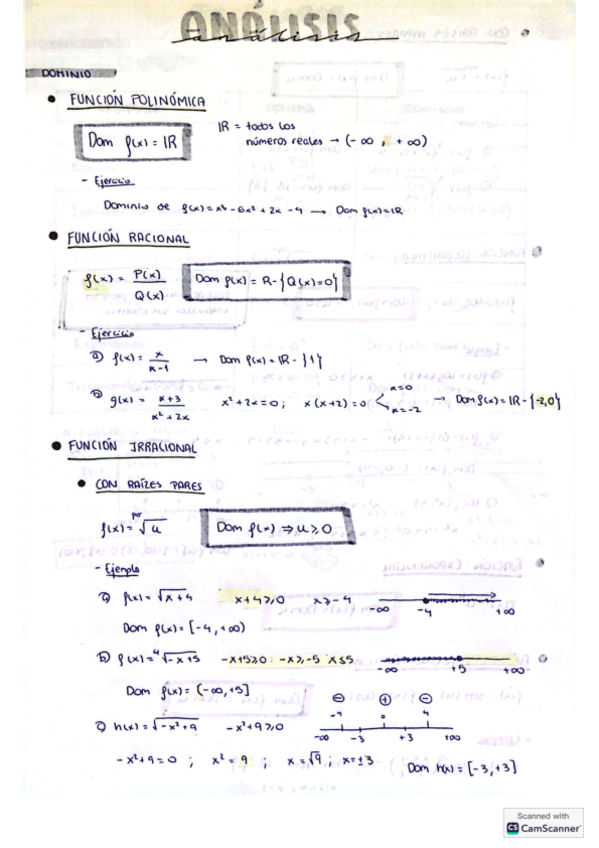 ANÁLISIS
análisis
DOMINIO
• FUNCIÓN POLINÓMICA
Dom f(x) = IR
IR = todos los
números reales → (-∞, +∞)
- Ejercicio
Dominio de f(x) = x³ - 6x² + 2x - 4 → Dom f(x) = IR
• FUNCIÓN RACIONAL
f(x) = P(x)/Q(x) Dom f(x) = R - {Q(x)=0}
- Ejercicio
a) f(x) = x/(x-1) → Dom f(x) = IR - {1}
b) g(x) = (x+3)/(x²+2x) x²+2x=0; x(x+2)=0 < x=0 x=-2 → Dom g(x) = IR - {-2,0}
• FUNCIÓN IRRACIONAL
• CON RAÍZES PARES
f(x) = par√u Dom f(x) ⇒ u ≥ 0
- Ejemplo
a) f(x) = √x+4 x+4 ≥ 0 x ≥ -4 -∞ -4 +∞
Dom f(x) = [-4, +∞)
b) f(x) = ⁴√-x+5 -x+5 ≥ 0 : -x ≥ -5 x ≤ 5 -∞ +5 +∞
Dom f(x) = (-∞, +5]
⊖ ⊕ ⊖
-4 0 4
c) h(x) = √-x²+9 -x²+9 ≥ 0 -∞ -3 +3 +∞
-x²+9=0 ; x²=9 ; x=√9 ; x=±3 Dom h(x) = [-3,+3]
Scanned with
CS CamScanner